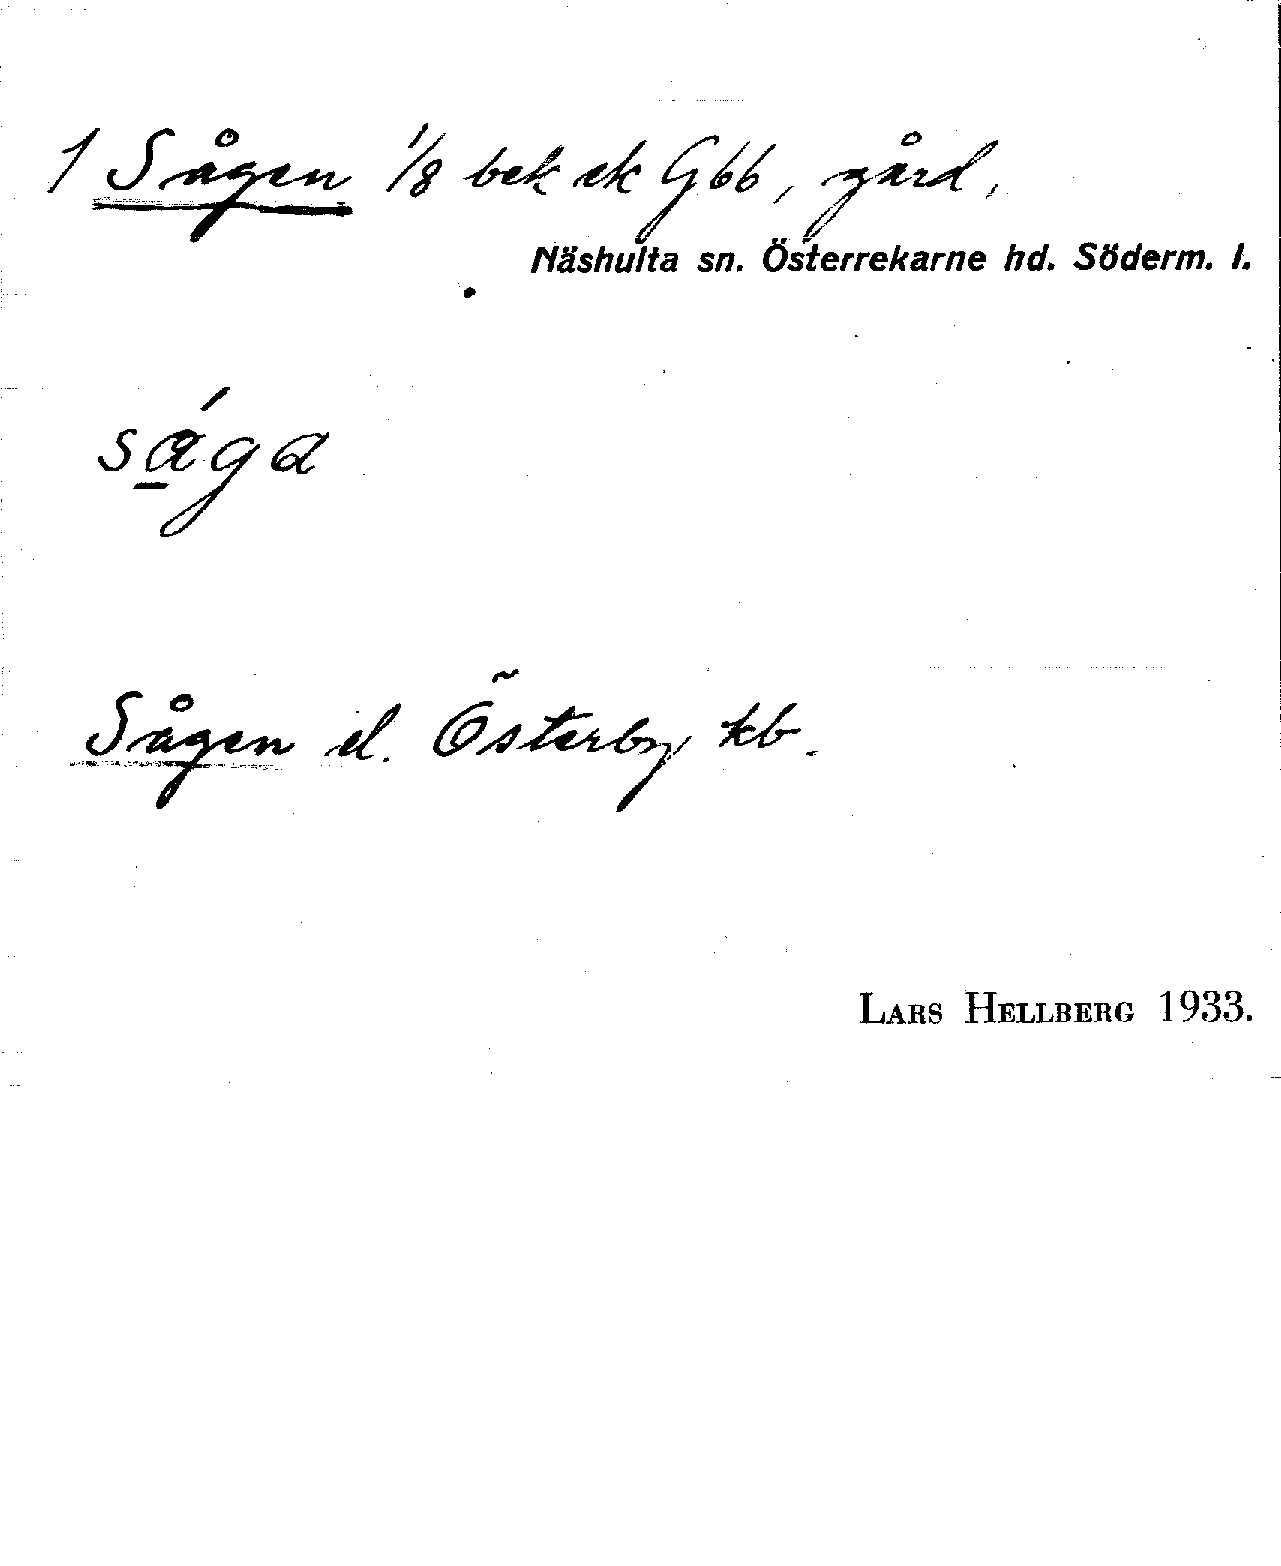 1 Sågen 1/8 bek ek Gbb, gård,
Näshulta sn. Österrekarne hd. Söderm. l.
såga
Sågen el. Österby kb.
LARS HELLBERG 1933.